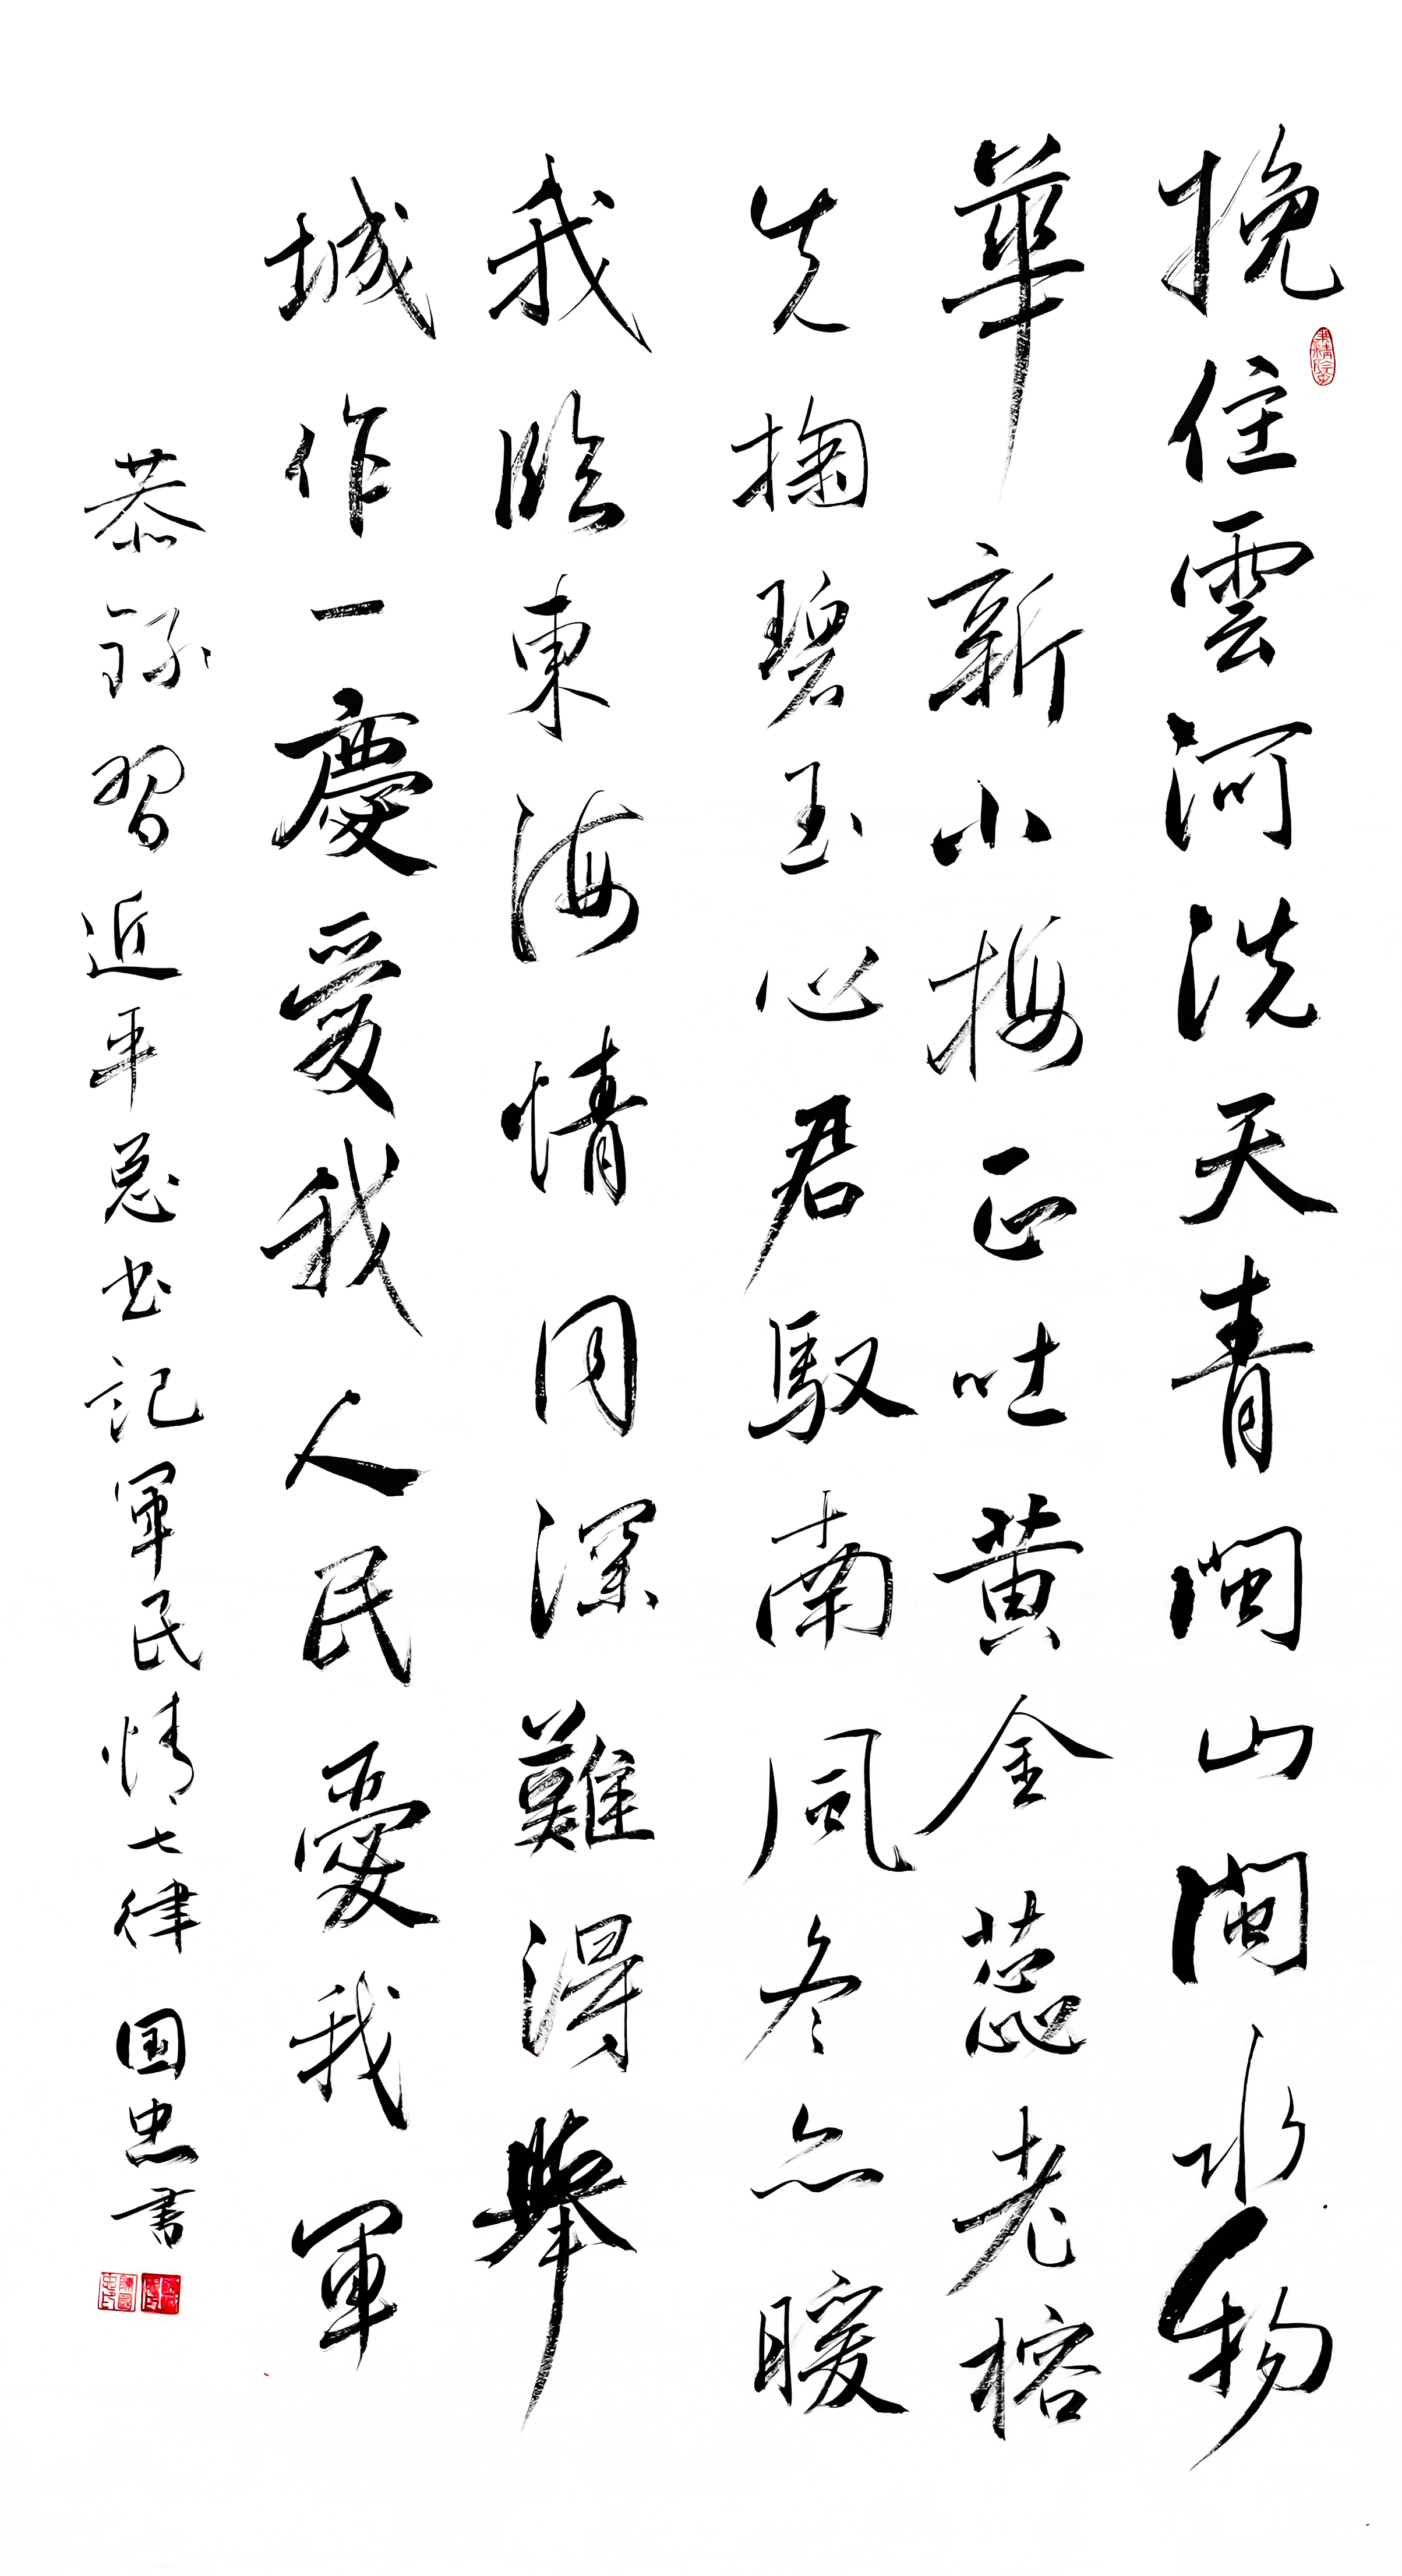 挽住雲河洗天青閩山閩水物
華新小梅正吐黄金蕊老榕
先掬碧玉心君馭南風冬亦暖
我臨東海情同深難得舉
城作一慶愛我人民愛我軍
恭錄習近平总书記軍民情七律 国忠書